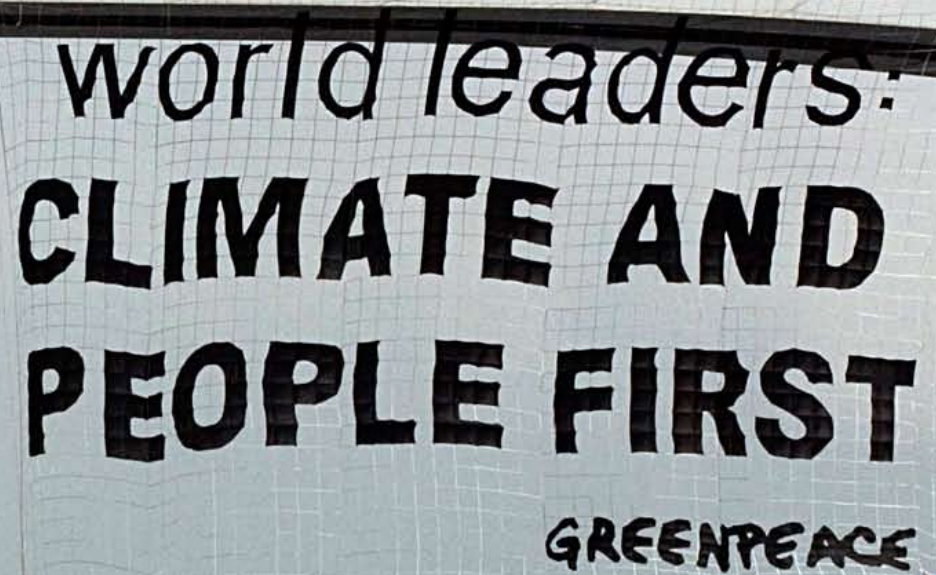 world leaders:
CLIMATE AND
PEOPLE FIRST
GREENPEACE